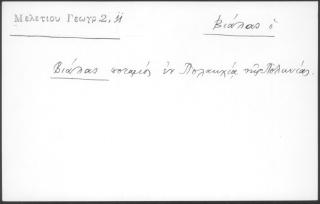 Μελετίου Γεωγρ 2, 11
Βιάλας ὁ
Βιάλας ποταμός ἐν Πολαχίᾳ τῆς Πολωνίας.